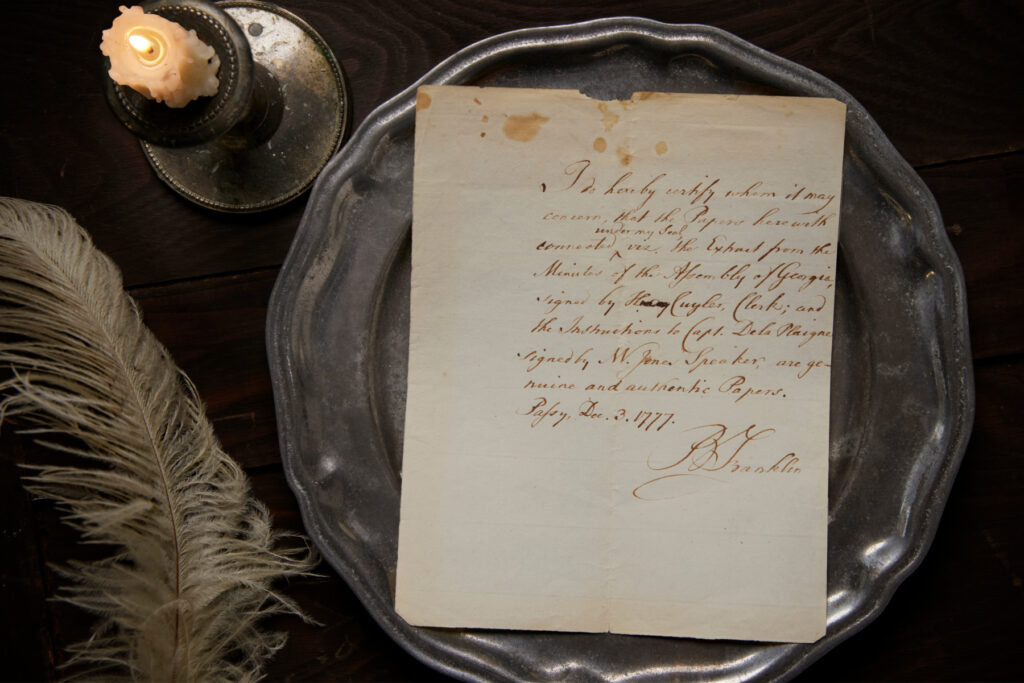 I do hereby certify whom it may
concern, that the Papers herewith
under my Seal
connected, viz. the Extract from the
Minutes ^ of the Assembly of Georgia,
signed by Cuyler, Clerk; and
the Instructions to Capt. Dela Plaigne
signed by W Jones Speaker, are ge-
nuine and authentic Papers.
Passy, Dec. 3. 1777.
B Franklin